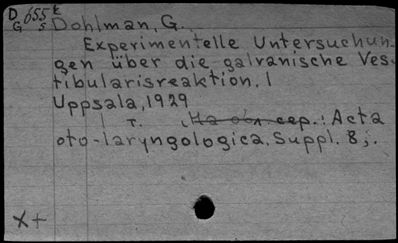 D 655 k
G s Dohlman, G.
Experimentelle Untersuchun-
gen über die galvanische Ves-
tibularisreaktion. I
Uppsala, 1929
1 т. На обл. сер.: Acta
oto-laryngologica. Suppl. 8;.
X+